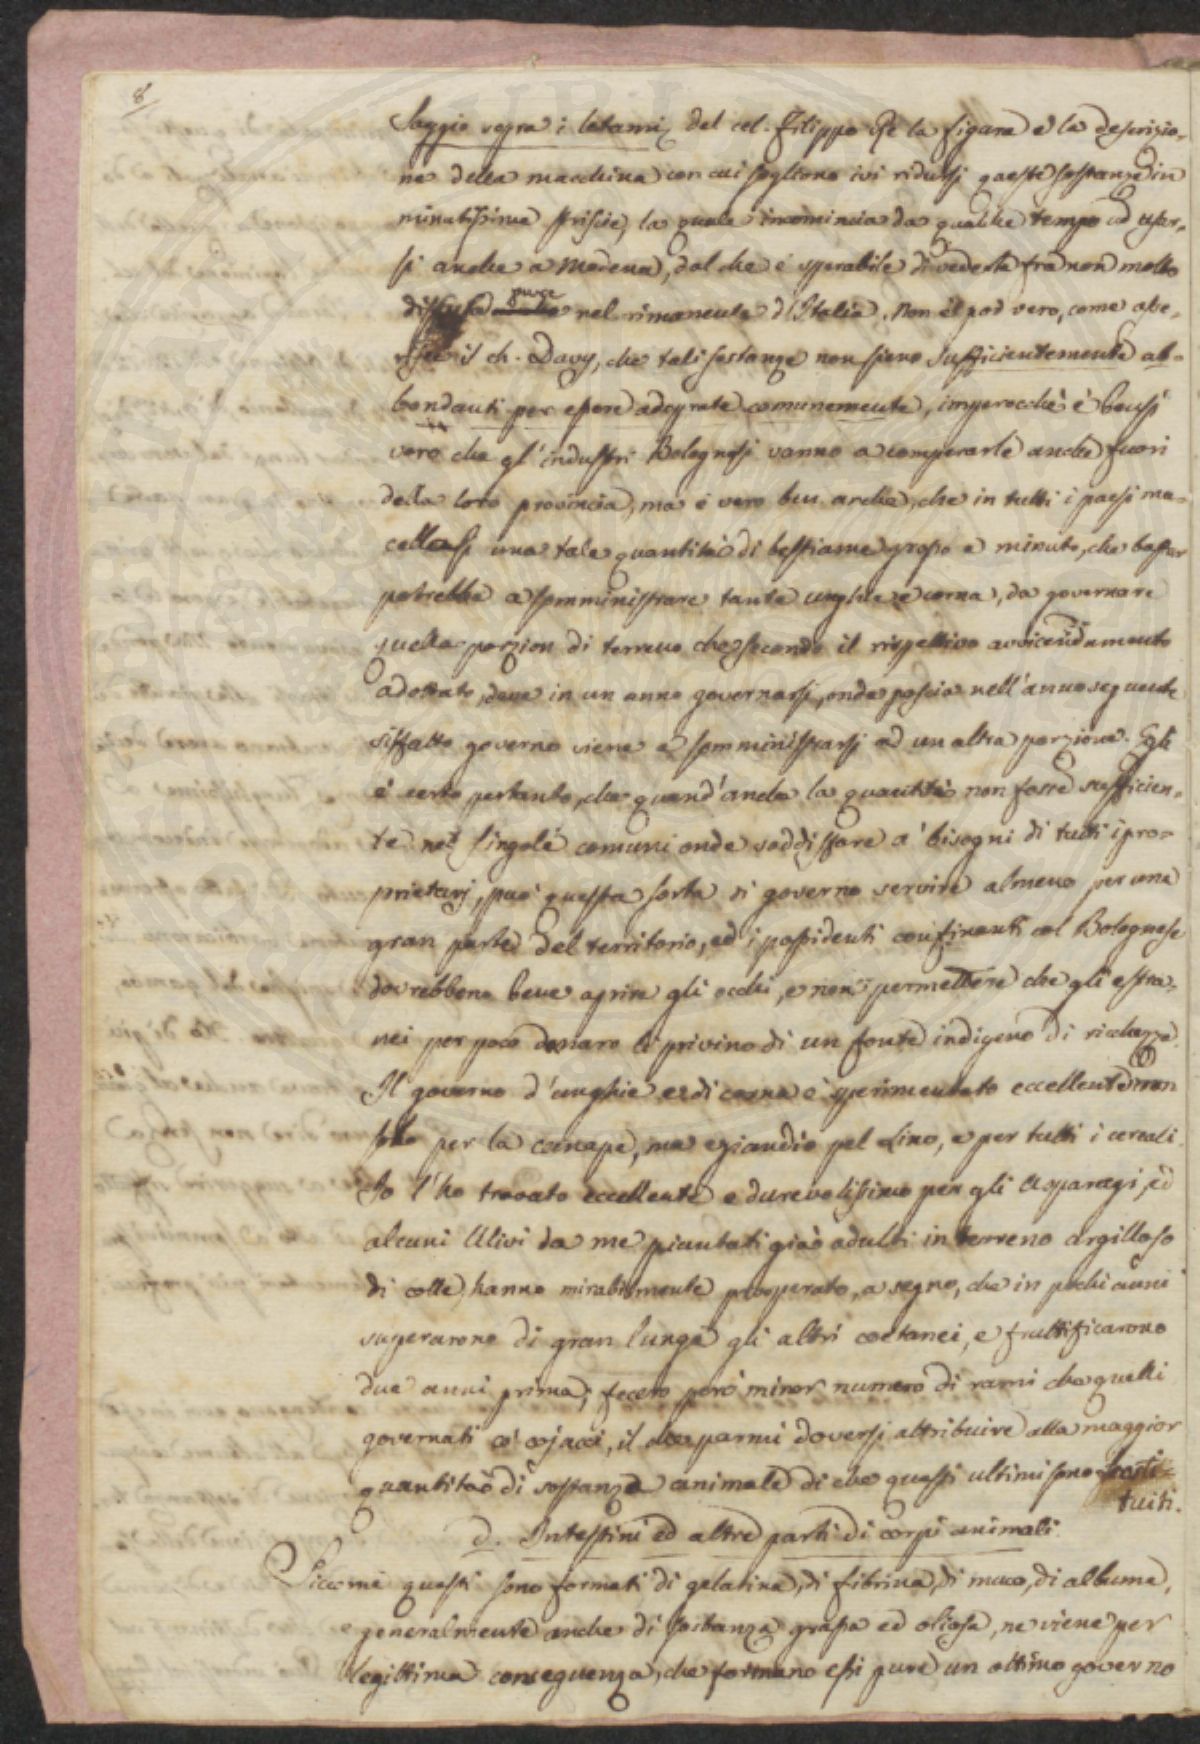 8
Saggio sopra i letami, del cel. Filippo Re la figura e la descrizio-
ne della macchina con cui sogliono ivi ridursi queste sostanze in
minutissime striscie, la quale incomincia da qualche tempo ad usar-
si anche a Modena, dal che è sperabile di vederla fra non molto
diffusa pure nel rimanente d'Italia. Non è poi vero, come asse-
risce il ch. Davy, che tali sostanze non sieno sufficientemente ab-
bondanti per essere adoprate comunemente, imperocchè è bensì
vero che gl'industri Bolognesi vanno a comperarle anche fuori
della loro provincia, ma è vero ben anche, che in tutti i paesi ma-
cellasi una tale quantità di bestiame grosso e minuto, che bastar
potrebbe a somministrare tante unghie e corna, da governare
quella porzion di terreno che secondo il rispettivo avvicendamento
adottato, deve in un anno governarsi, onde poscia nell'anno seguente
siffatto governo viene a somministrarsi ad un altra porzione. Egli
è certo pertanto, che quand'anche la quantità non fosse sufficien-
te nei singoli comuni onde soddisfare a' bisogni di tutti i pro-
prietarj, può questa sorta di governo servire almeno per una
gran parte del territorio, ed i possidenti confinanti col Bolognese
dovrebbono bene aprire gli occhi, e non permettere che gli estra-
nei per poco denaro li privino di un fonte indigeno di ricchezze.
Il governo d'unghie e di corna è sperimentato eccellente non
solo per la canape, ma eziandio pel Lino, e per tutti i cereali.
Io l'ho trovato eccellente e durevolissimo per gli Asparagi, ed
alcuni Ulivi da me piantati già adulti in terreno argilloso
di colle, hanno mirabilmente prosperato, a segno, che in pochi anni
superarono di gran lunga gli altri coetanei, e fruttificarono
due anni prima; fecero però minor numero di rami che quelli
governati co' cojacci, il che parmi doversi attribuire alla maggior
quantità di sostanza animale di che questi ultimi sono costi-
tuiti.
d. Intestini ed altre parti di corpi animali.
Siccome questi sono formati di gelatina, di fibrina, di muco, di albume,
e generalmente anche di sostanza grassa ed oliosa, ne viene per
legittima conseguenza, che formano essi pure un ottimo governo